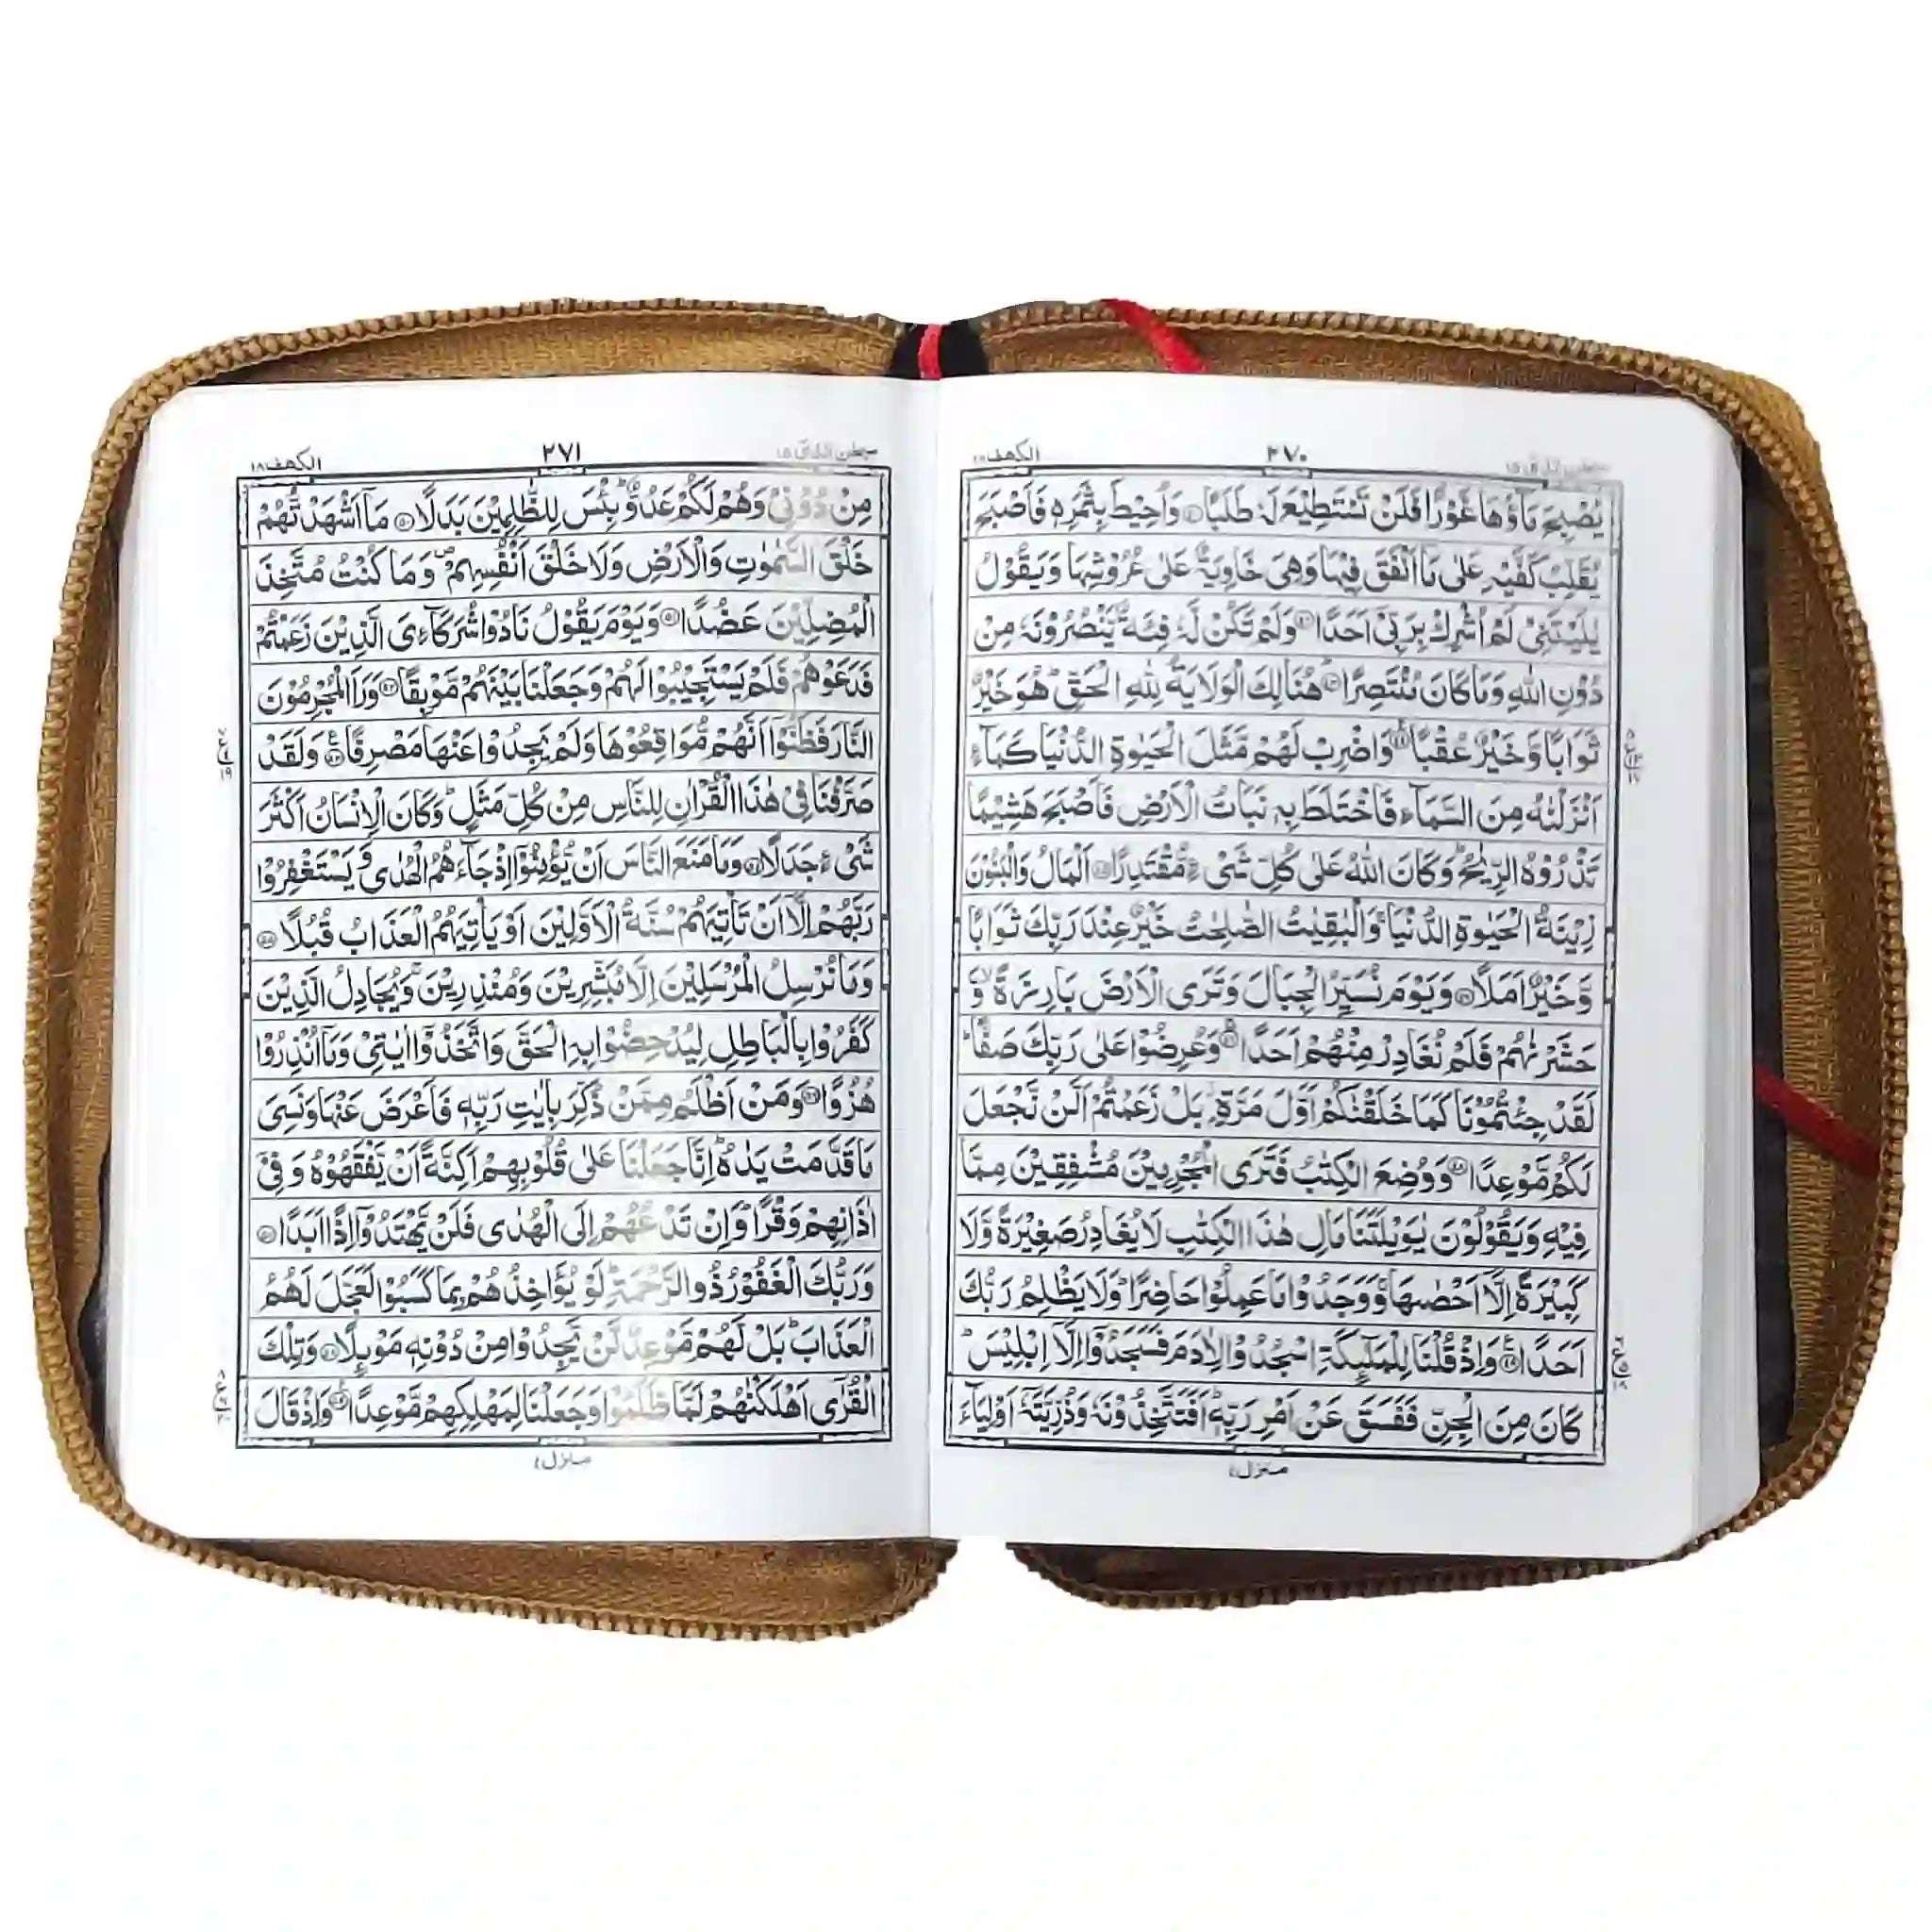 الكهف ١٨
٢٧٠
سبحن الذي ١٥
يُصْبِحَ مَآؤُهَا غَوْرًا فَلَنْ تَسْتَطِيْعَ لَهٗ طَلَبًا ﴿٤١﴾ وَاُحِيْطَ بِثَمَرِهٖ فَاَصْبَحَ
يُقَلِّبُ كَفَّيْهِ عَلٰى مَآ اَنْفَقَ فِيْهَا وَهِىَ خَاوِيَةٌ عَلٰى عُرُوْشِهَا وَيَقُوْلُ
يٰلَيْتَنِىْ لَمْ اُشْرِكْ بِرَبِّىْٓ اَحَدًا ﴿٤٢﴾ وَلَمْ تَكُنْ لَّهٗ فِئَةٌ يَّنْصُرُوْنَهٗ مِنْ
دُوْنِ اللّٰهِ وَمَا كَانَ مُنْتَصِرًا ﴿٤٣﴾ هُنَالِكَ الْوَلَايَةُ لِلّٰهِ الْحَقِّ ؕ هُوَ خَيْرٌ
ثَوَابًا وَّخَيْرٌ عُقْبًا ﴿٤٤﴾ وَاضْرِبْ لَهُمْ مَّثَلَ الْحَيٰوةِ الدُّنْيَا كَمَآءٍ
اَنْزَلْنٰهُ مِنَ السَّمَآءِ فَاخْتَلَطَ بِهٖ نَبَاتُ الْاَرْضِ فَاَصْبَحَ هَشِيْمًا
تَذْرُوْهُ الرِّيٰحُ ؕ وَكَانَ اللّٰهُ عَلٰى كُلِّ شَىْءٍ مُّقْتَدِرًا ﴿٤٥﴾ اَلْمَالُ وَالْبَنُوْنَ
زِيْنَةُ الْحَيٰوةِ الدُّنْيَا ۚ وَالْبٰقِيٰتُ الصّٰلِحٰتُ خَيْرٌ عِنْدَ رَبِّكَ ثَوَابًا
وَّخَيْرٌ اَمَلًا ﴿٤٦﴾ وَيَوْمَ نُسَيِّرُ الْجِبَالَ وَتَرَى الْاَرْضَ بَارِزَةً ۙ وَّ
حَشَرْنٰهُمْ فَلَمْ نُغَادِرْ مِنْهُمْ اَحَدًا ﴿٤٧﴾ وَعُرِضُوْا عَلٰى رَبِّكَ صَفًّا ؕ
لَقَدْ جِئْتُمُوْنَا كَمَا خَلَقْنٰكُمْ اَوَّلَ مَرَّةٍ ۢ بَلْ زَعَمْتُمْ اَلَّنْ نَّجْعَلَ
لَكُمْ مَّوْعِدًا ﴿٤٨﴾ وَوُضِعَ الْكِتٰبُ فَتَرَى الْمُجْرِمِيْنَ مُشْفِقِيْنَ مِمَّا
فِيْهِ وَيَقُوْلُوْنَ يٰوَيْلَتَنَا مَالِ هٰذَا الْكِتٰبِ لَا يُغَادِرُ صَغِيْرَةً وَّلَا
كَبِيْرَةً اِلَّآ اَحْصٰىهَا ۚ وَوَجَدُوْا مَا عَمِلُوْا حَاضِرًا ؕ وَلَا يَظْلِمُ رَبُّكَ
اَحَدًا ﴿٤٩﴾ وَاِذْ قُلْنَا لِلْمَلٰٓئِكَةِ اسْجُدُوْا لِاٰدَمَ فَسَجَدُوْٓا اِلَّآ اِبْلِيْسَ ؕ
كَانَ مِنَ الْجِنِّ فَفَسَقَ عَنْ اَمْرِ رَبِّهٖ ؕ اَفَتَتَّخِذُوْنَهٗ وَذُرِّيَّتَهٗٓ اَوْلِيَآءَ
منزل ٤
الكهف ١٨
٢٧١
سبحن الذي ١٥
مِنْ دُوْنِىْ وَهُمْ لَكُمْ عَدُوٌّ ؕ بِئْسَ لِلظّٰلِمِيْنَ بَدَلًا ﴿٥٠﴾ مَآ اَشْهَدْتُّهُمْ
خَلْقَ السَّمٰوٰتِ وَالْاَرْضِ وَلَا خَلْقَ اَنْفُسِهِمْ ۪ وَمَا كُنْتُ مُتَّخِذَ
الْمُضِلِّيْنَ عَضُدًا ﴿٥١﴾ وَيَوْمَ يَقُوْلُ نَادُوْا شُرَكَآءِىَ الَّذِيْنَ زَعَمْتُمْ
فَدَعَوْهُمْ فَلَمْ يَسْتَجِيْبُوْا لَهُمْ وَجَعَلْنَا بَيْنَهُمْ مَّوْبِقًا ﴿٥٢﴾ وَرَاَ الْمُجْرِمُوْنَ
النَّارَ فَظَنُّوْٓا اَنَّهُمْ مُّوَاقِعُوْهَا وَلَمْ يَجِدُوْا عَنْهَا مَصْرِفًا ﴿٥٣﴾ وَلَقَدْ
صَرَّفْنَا فِىْ هٰذَا الْقُرْاٰنِ لِلنَّاسِ مِنْ كُلِّ مَثَلٍ ؕ وَكَانَ الْاِنْسَانُ اَكْثَرَ
شَىْءٍ جَدَلًا ﴿٥٤﴾ وَمَا مَنَعَ النَّاسَ اَنْ يُّؤْمِنُوْٓا اِذْ جَآءَهُمُ الْهُدٰى وَيَسْتَغْفِرُوْا
رَبَّهُمْ اِلَّآ اَنْ تَاْتِيَهُمْ سُنَّةُ الْاَوَّلِيْنَ اَوْ يَاْتِيَهُمُ الْعَذَابُ قُبُلًا ﴿٥٥﴾
وَمَا نُرْسِلُ الْمُرْسَلِيْنَ اِلَّا مُبَشِّرِيْنَ وَمُنْذِرِيْنَ ۚ وَيُجَادِلُ الَّذِيْنَ
كَفَرُوْا بِالْبَاطِلِ لِيُدْحِضُوْا بِهِ الْحَقَّ وَاتَّخَذُوْٓا اٰيٰتِىْ وَمَآ اُنْذِرُوْا
هُزُوًا ﴿٥٦﴾ وَمَنْ اَظْلَمُ مِمَّنْ ذُكِّرَ بِاٰيٰتِ رَبِّهٖ فَاَعْرَضَ عَنْهَا وَنَسِىَ
مَا قَدَّمَتْ يَدٰهُ ؕ اِنَّا جَعَلْنَا عَلٰى قُلُوْبِهِمْ اَكِنَّةً اَنْ يَّفْقَهُوْهُ وَفِىْٓ
اٰذَانِهِمْ وَقْرًا ؕ وَاِنْ تَدْعُهُمْ اِلَى الْهُدٰى فَلَنْ يَّهْتَدُوْٓا اِذًا اَبَدًا ﴿٥٧﴾
وَرَبُّكَ الْغَفُوْرُ ذُو الرَّحْمَةِ ؕ لَوْ يُؤَاخِذُهُمْ بِمَا كَسَبُوْا لَعَجَّلَ لَهُمُ
الْعَذَابَ ؕ بَلْ لَّهُمْ مَّوْعِدٌ لَّنْ يَّجِدُوْا مِنْ دُوْنِهٖ مَوْئِلًا ﴿٥٨﴾ وَتِلْكَ
الْقُرٰٓى اَهْلَكْنٰهُمْ لَمَّا ظَلَمُوْا وَجَعَلْنَا لِمَهْلِكِهِمْ مَّوْعِدًا ﴿٥٩﴾ وَاِذْ قَالَ
منزل ٤